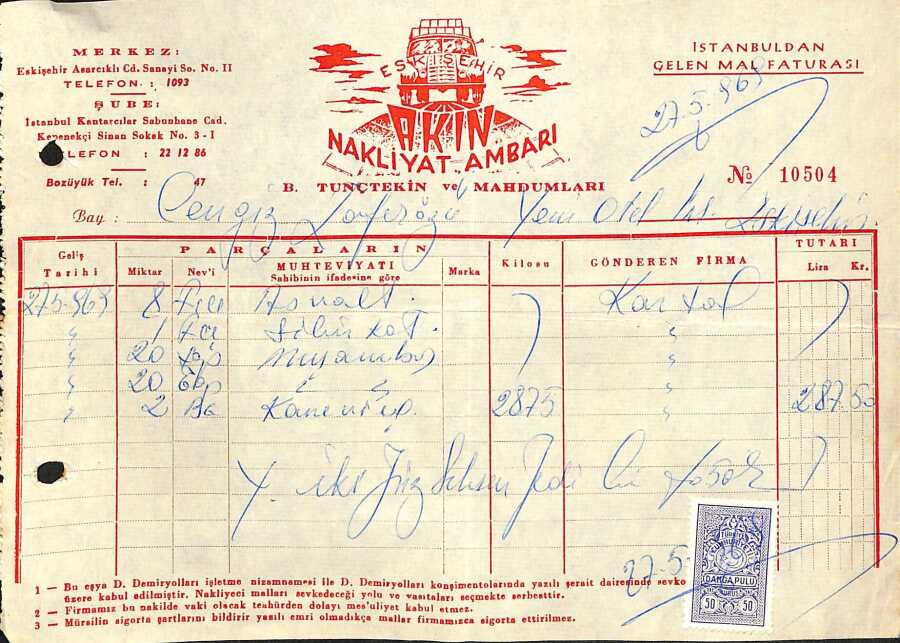 MERKEZ:
Eskişehir Asarcıklı Cd. Sanayi So. No. II
TELEFON. : 1093
ŞUBE:
İstanbul Kantarcılar Sabunhane Cad.
Kepenekçi Sinan Sokak No. 3 - I
TELEFON : 22 12 86
Bozüyük Tel. : 47
ESKİŞEHİR
AKIN
NAKLİYAT AMBARI
B. TUNÇTEKİN ve MAHDUMLARI
İSTANBULDAN
GELEN MAL FATURASI
27.5.968
№ 10504
Bay : Cengiz Yeni Otel
Geliş Tarihi
PARÇALARIN
Miktar Nev'i MUHTEVİYATI Sahibinin ifadesine göre Marka
Kilosu
GÖNDEREN FİRMA
TUTARI
Lira Kr.
27.5.968 8 Kartal
" 1 "
" 20 "
" 20 " " "
" 2 2875 " 287.50
27.5
TÜRKİYE CUMHURİYETİ
DAMGA PULU
50 KURUŞ 50
1 — Bu eşya D. Demiryolları işletme nizamnamesi ile D. Demiryolları konşimentolarında yazılı şerait dairesinde sevko
üzere kabul edilmiştir. Nakliyeci malları sevkedeceği yolu ve vasıtaları seçmekte serbesttir.
2 — Firmamız bu nakilde vaki olacak teahürden dolayı mes'uliyet kabul etmez.
3 — Mürsilin sigorta şartlarını bildirir yazılı emri olmadıkça mallar firmamızca sigorta ettirilmez.